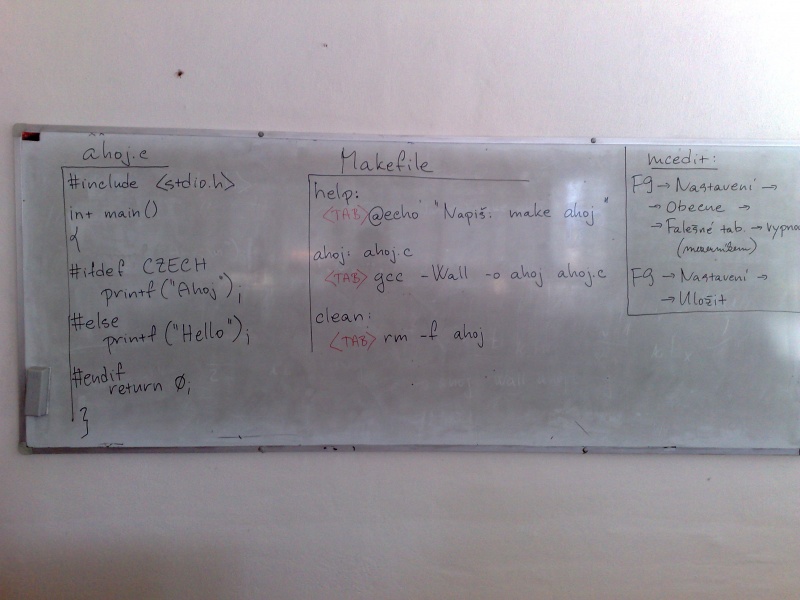 ahoj.c
#include <stdio.h>
int main()
{
#ifdef CZECH
printf("Ahoj");
#else
printf("Hello");
#endif
return 0;
}
Makefile
help:
<TAB>@echo "Napiš: make ahoj"
ahoj: ahoj.c
<TAB> gcc -Wall -o ahoj ahoj.c
clean:
<TAB> rm -f ahoj
mcedit:
F9 → Nastavení →
→ Obecne →
→ Falešné tab. → vypno
(mezerníkem)
F9 → Nastavení →
→ Uložit